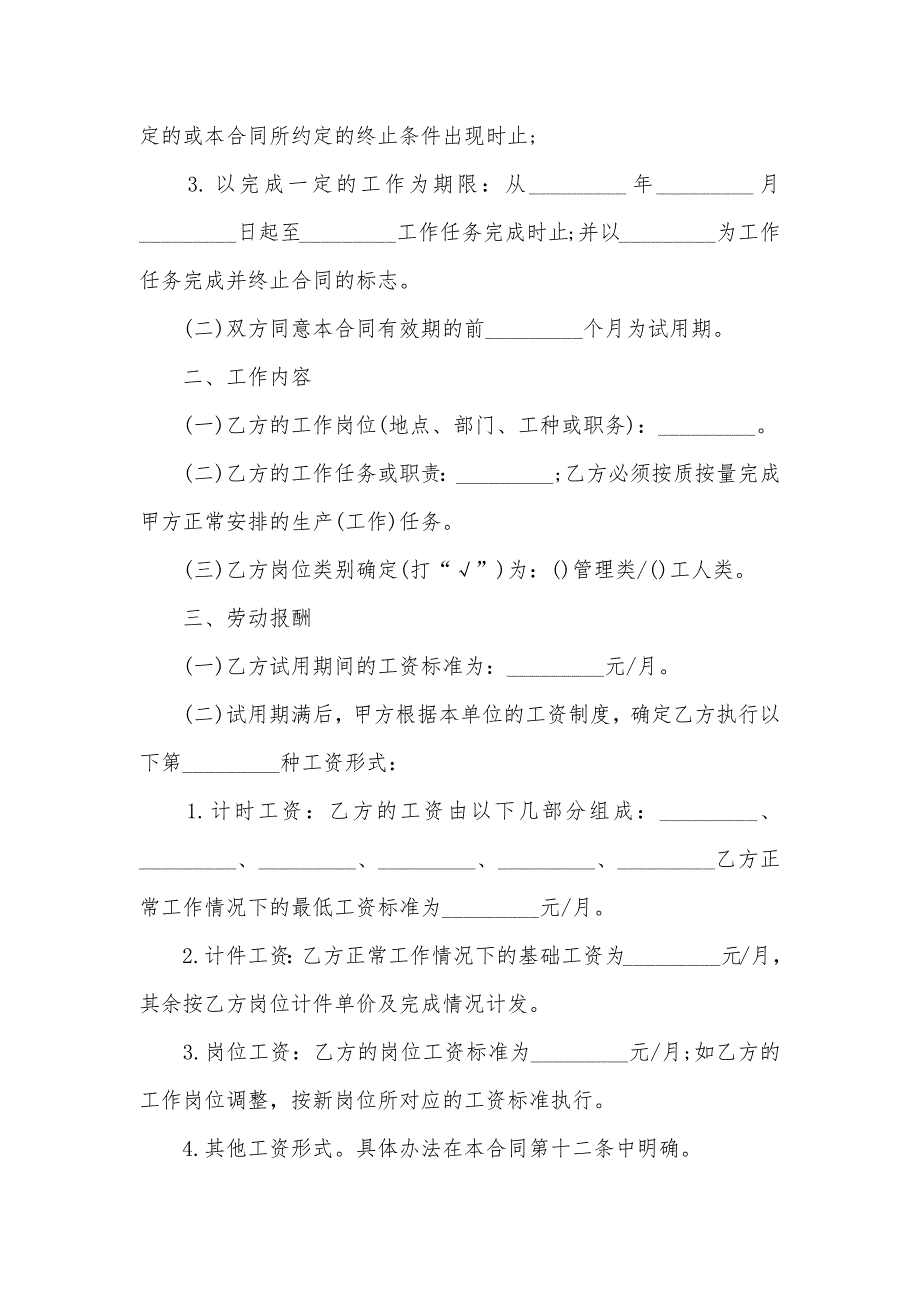 定的或本合同所约定的终止条件出现时止;
3. 以完成一定的工作为期限：从_________ 年_________ 月
_________日起至_________工作任务完成时止;并以_________为工作
任务完成并终止合同的标志。
(二)双方同意本合同有效期的前_________个月为试用期。
二、工作内容
(一)乙方的工作岗位(地点、部门、工种或职务)：_________。
(二)乙方的工作任务或职责：_________;乙方必须按质按量完成
甲方正常安排的生产(工作)任务。
(三)乙方岗位类别确定(打“√”)为：()管理类/()工人类。
三、劳动报酬
(一)乙方试用期间的工资标准为：_________元/月。
(二)试用期满后，甲方根据本单位的工资制度，确定乙方执行以
下第_________种工资形式：
1.计时工资：乙方的工资由以下几部分组成：_________、
_________、_________、_________、_________、_________乙方正
常工作情况下的最低工资标准为_________元/月。
2.计件工资：乙方正常工作情况下的基础工资为_________元/月，
其余按乙方岗位计件单价及完成情况计发。
3.岗位工资：乙方的岗位工资标准为_________元/月;如乙方的
工作岗位调整，按新岗位所对应的工资标准执行。
4.其他工资形式。具体办法在本合同第十二条中明确。